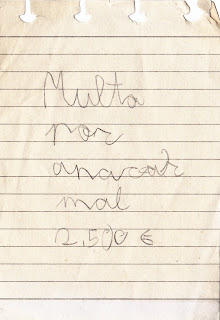 Multa
por
aparcar
mal
2,500 €